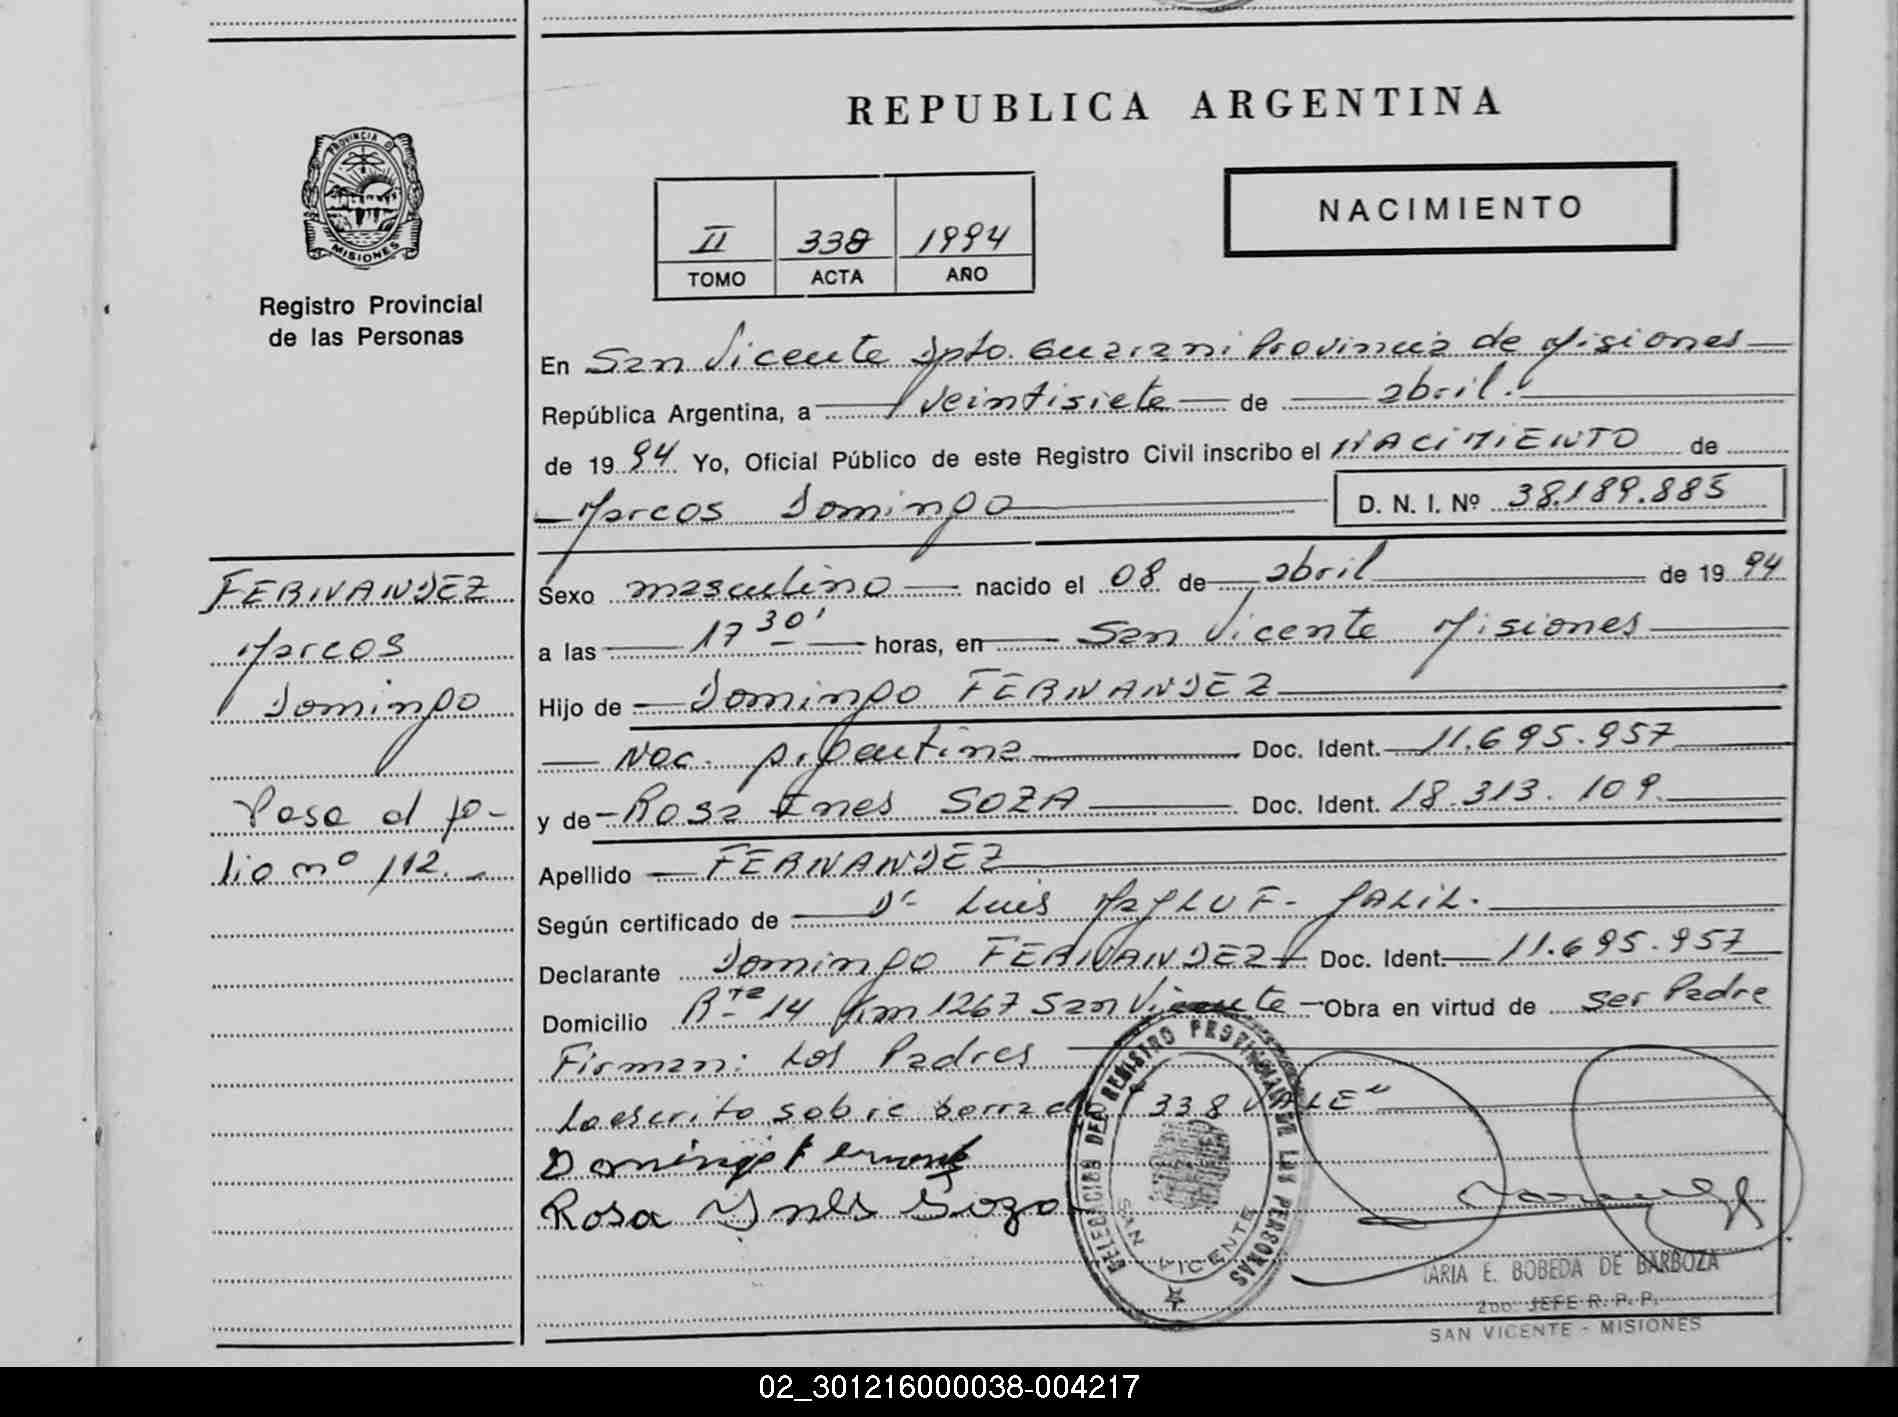 REPUBLICA ARGENTINA
PROVINCIA D MISIONES
Registro Provincial
de las Personas
II 338 1994
TOMO ACTA AÑO
NACIMIENTO
En San Vicente Dpto. Guarani Provincia de Misiones
República Argentina, a veintisiete de abril.
de 19 94 Yo, Oficial Público de este Registro Civil inscribo el NACIMIENTO de
Marcos Domingo D. N. I. Nº 38.189.885
FERNANDEZ
Marcos
Domingo
Pasa al fo-
lio nº 112.
Sexo masculino nacido el 08 de abril de 19 94
a las 17 30' horas, en San Vicente Misiones
Hijo de Domingo FERNANDEZ
Nac. Argentina Doc. Ident. 11.695.957
y de Rosa Ines SOZA Doc. Ident. 18.313.109.
Apellido FERNANDEZ
Según certificado de Dr Luis MAGLUF- JALIL.
Declarante Domingo FERNANDEZ Doc. Ident. 11.695.957
Domicilio R- ta 14 Km 1267 San Vicente - Obra en virtud de ser Padre
Firman: Los Padres
Lo escrito sobre borrado "338 VALE"
Domingo Fernandez
Rosa Ynes Soza
DELEGACION DEL REGISTRO PROVINCIAL DE LAS PERSONAS
SAN VICENTE
MARIA E. BOBEDA DE BARBOZA
2do. JEFE R. P. P.
SAN VICENTE - MISIONES
02_301216000038-004217